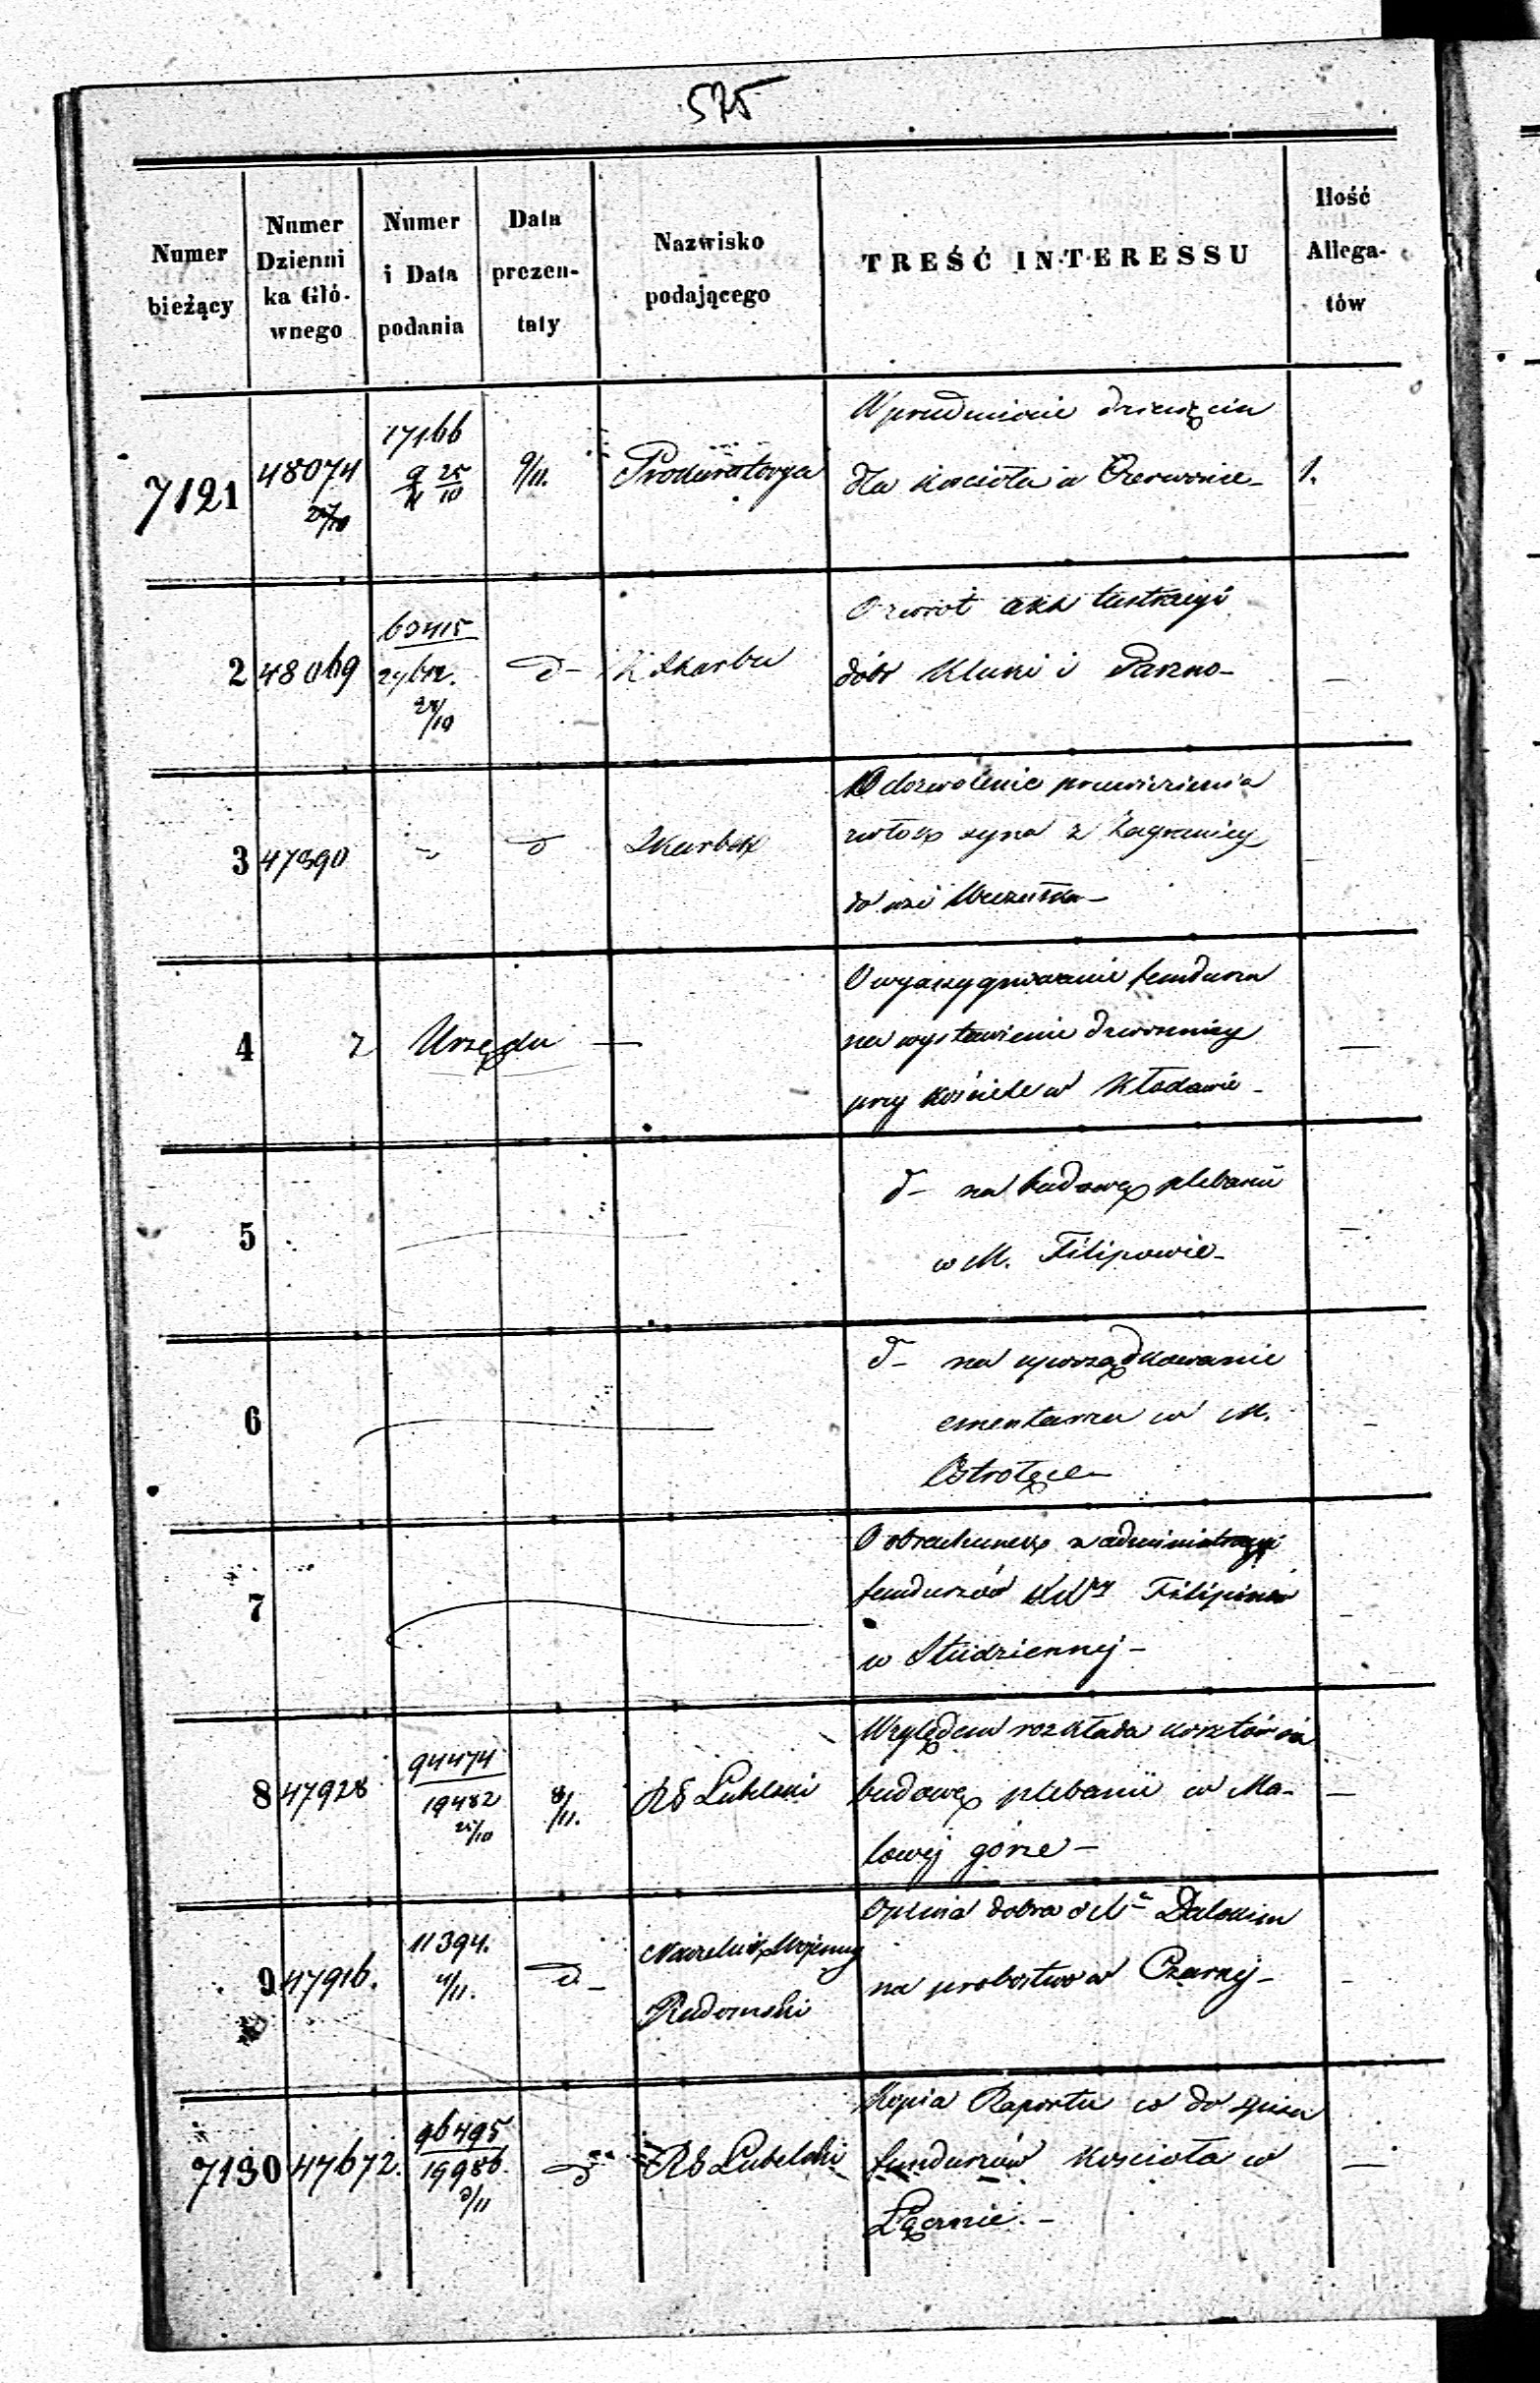 575
Numer bieżący
Numer Dzienni ka Głó- wnego
Numer i Data podania
Data prezen- taty
Nazwisko podającego
TREŚĆ INTERESSU
Ilość Allega- tów
7121 48074 17166 9/11 25/10 9/11. Prokuratorya
W przedmiocie
dla kościoła w Czerwonce- 1.
2 48069 60415 24/10 d- K Skarbu
O zwrot akt lustracyi
dóbr Kluki i Parzno- —
3 47390 - d Skarbek
O dozwolenie przewiezienia
zwłok syna z zagranicy
do wsi
4 z Urzędu —
O wyassygnowanie fundusza
na wystawienie dzwonnicy
przy kościele w Kłodawie - —
5
d- na budowę plebanii
w M. Filipowie- —
6
d- na uporządkowanie
cmentarza w M.
Ostrołęce -
7
O obrachunek z administracyi
funduszów XXży Filipinów
w Studziennej - -
8 47928 94474 19482 25/10 8/11. RG Lubelski
Względem rozkładu kosztów na
budowę plebanii w Ma-
lowej górze - —
9 47916. 11394. 4/11. d- Naczelnik Wojenny
Radomski
Opinia dobra o
na probostwo w Czarnej - -
7130 47672. 96495 19986 3/11 d RG Lubelski
Kopia Raportu co do spisu
funduszów kościoła w
Łęcznie. - —